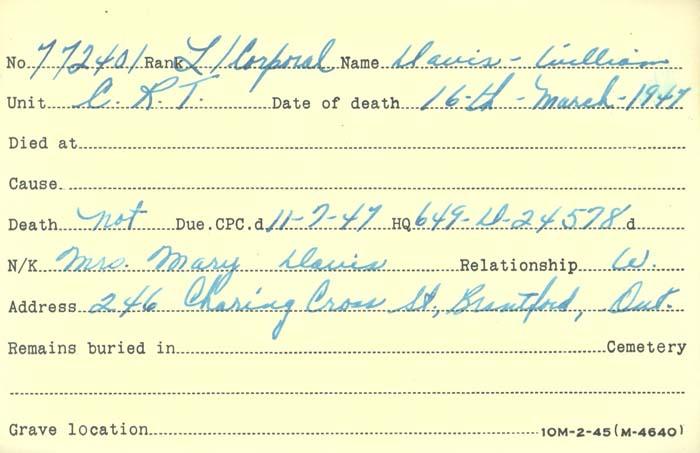 No 772401 Rank L/Corporal Name Davis - William
Unit C. R. T. Date of death 16-th - March - 1947
Died at
Cause
Death not Due. CPC.d 11-7-47 HQ 649-D-24578 d
N/K Mrs. Mary Davis Relationship W.
Address 246 Charing Cross St., Brantford, Ont.
Remains buried in Cemetery
Grave location 10M-2-45 (M-4640)